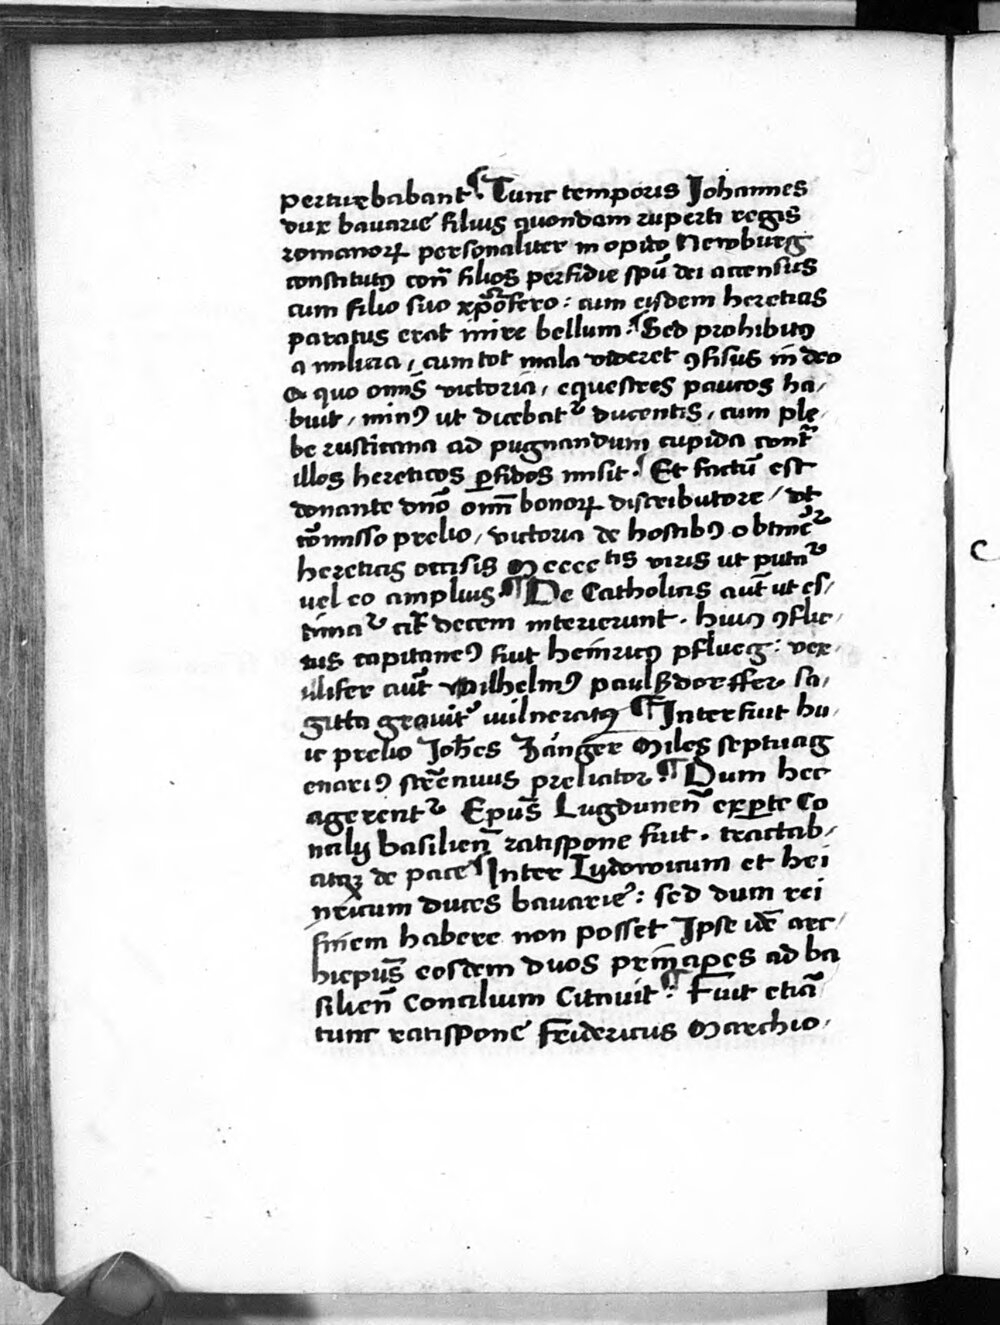 perturbabant ¶ Tunc temporis Johannes
dux bavarie filius quondam ruperti regis
romanorꝝ personaliter in opido Newburg
constitutꝯ contͣ filios perfidie spū dei accensus
cum filio suo xp̄ofero : cum eisdem hereticis
paratus erat inire bellum . ¶ Sed prohibitꝯ
a milicia , cum tot mala videret ꝯfisus in deo
a quo om̄is victoria , equestres paucos ha/
buit , minꝯ ut dicebatᷣ ducentis , cum ple/
be rusticana ad pugnandum cupida contͣ
illos hereticos ꝑfidos misit . ¶ Et factū est
donante dn̄o om̄i bonorꝝ distributore / vt
cōmisso prelio , victoria de hostibꝯ obtineᷣ
hereticis occisis Mcccc tis viris ut putaᷣ
vel eo amplius ¶ De Catholicis aut̄ ut es/
timaᷣ cit̄ decem interierunt . huiꝯ ꝯflic/
tus capitaneꝯ fuit heinricꝯ pfluegͣ : vex/
illifer aut̄ Wilhelmꝯ paulsdorffer sa/
gitta graviṫ vulneratꝯ ¶ Interfuit hu/
ic prelio Joh̄es Zänger Miles septuag
enariꝯ strēnuus preliator ¶ Dum hec
agerentᷣ Ep̄us Lugdunen̄ ex ꝑte Co
nalij basilien̄ ratispone fuit . tractab/
atqꝫ de pace ¶ Inter Lydowicum et hei
nricum duces bavarie : sed dum rei
finem habere non posset Ipse id̄e arc/
hiep̄us eosdem duos principes ad ba
silien̄ Concilium Citavit ¶ Fuit etiā
tunc ratispone Fridericus Marchio/